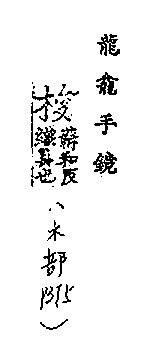 龍龕手鏡
蘇和反
織具也
（木部P375）